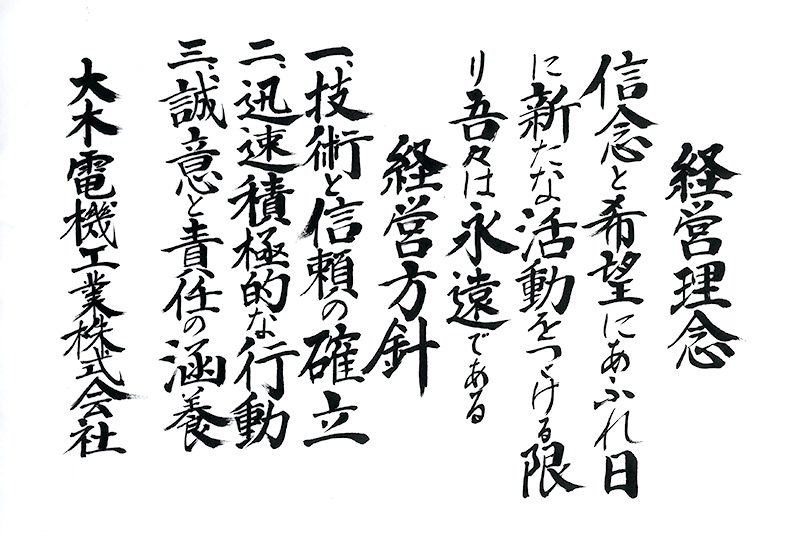 経営理念
信念と希望にあふれ日
に新たな活動をつゞける限
り吾々は永遠である
経営方針
一、技術と信頼の確立
二、迅速積極的な行動
三、誠意と責任の涵養
大木電機工業株式会社